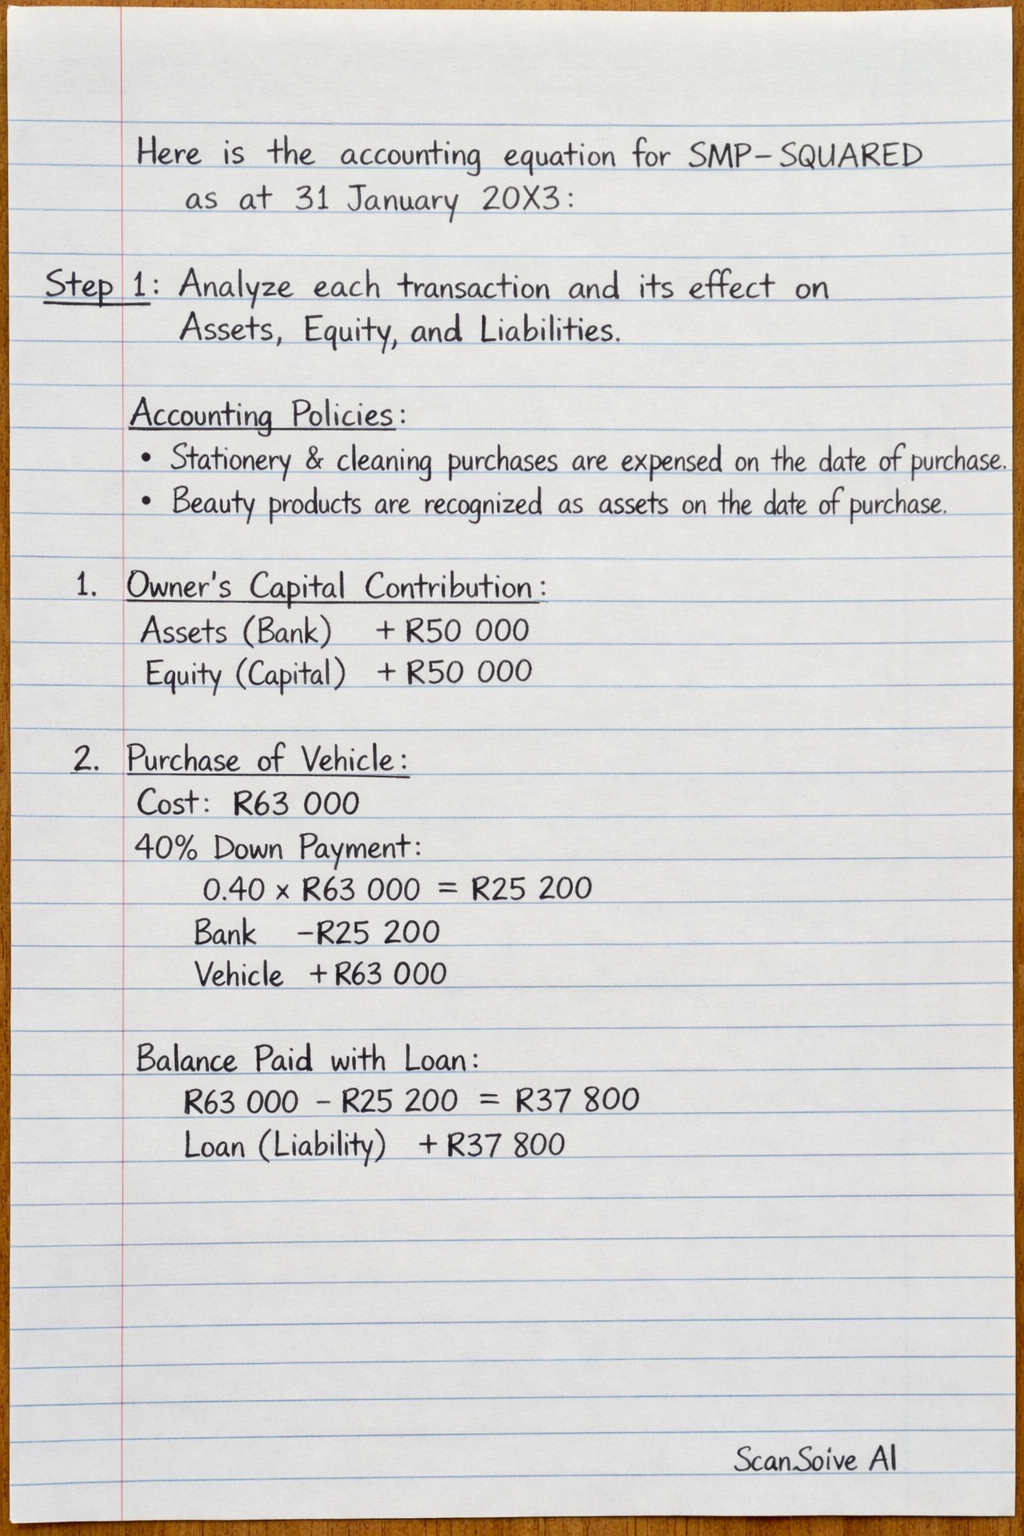 Here is the accounting equation for SMP-SQUARED
as at 31 January 20X3:
Step 1: Analyze each transaction and its effect on
Assets, Equity, and Liabilities.
Accounting Policies:
• Stationery & cleaning purchases are expensed on the date of purchase.
• Beauty products are recognized as assets on the date of purchase.
1. Owner's Capital Contribution:
Assets (Bank) + R50 000
Equity (Capital) + R50 000
2. Purchase of Vehicle:
Cost: R63 000
40% Down Payment:
0.40 × R63 000 = R25 200
Bank -R25 200
Vehicle + R63 000
Balance Paid with Loan:
R63 000 - R25 200 = R37 800
Loan (Liability) + R37 800
ScanSoive AI